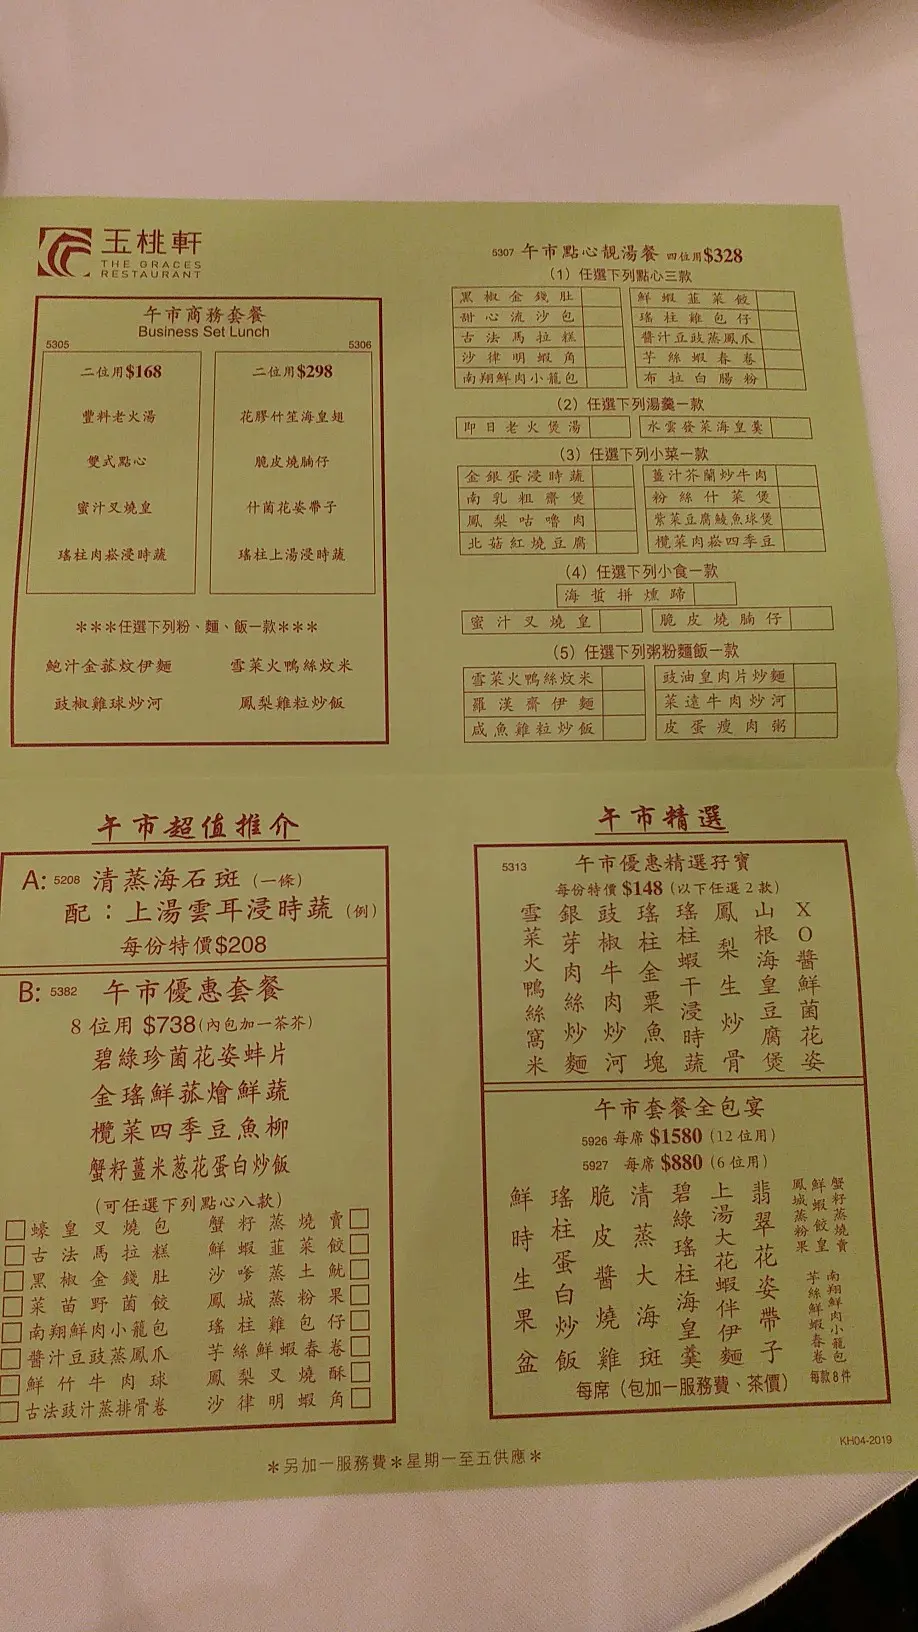 玉桃軒
THE GRACES
RESTAURANT
午市商務套餐
Business Set Lunch
5305
二位用$168
豐料老火湯
雙式點心
蜜汁叉燒皇
瑤柱肉崧浸時蔬
5306
二位用$298
花膠竹笙海皇翅
脆皮燒腩仔
什菌花姿帶子
瑤柱上湯浸時蔬
***任選下列粉、麵、飯一款***
鮑汁金菇炆伊麵 雪菜火鴨絲炆米
豉椒雞球炒河 鳳梨雞粒炒飯
5307 午市點心靚湯餐 四位用$328
(1) 任選下列點心三款
黑椒金錢肚 鮮蝦韮菜餃
甜心流沙包 瑤柱雞包仔
古法馬拉糕 醬汁豆豉蒸鳳爪
沙律明蝦角 芋絲蝦春卷
南翔鮮肉小籠包 布拉白腸粉
(2) 任選下列湯羹一款
即日老火煲湯 水雲發菜海皇羹
(3) 任選下列小菜一款
金銀蛋浸時蔬 薑汁芥蘭炒牛肉
南乳粗齋煲 粉絲什菜煲
鳳梨咕嚕肉 紫菜豆腐鯪魚球煲
北菇紅燒豆腐 欖菜肉崧四季豆
(4) 任選下列小食一款
海蜇拼燻蹄
蜜汁叉燒皇 脆皮燒腩仔
(5) 任選下列粥粉麵飯一款
雪菜火鴨絲炆米 豉油皇肉片炒麵
羅漢齋伊麵 菜遠牛肉炒河
咸魚雞粒炒飯 皮蛋瘦肉粥
午市超值推介
A: 5208 清蒸海石斑 (一條)
配：上湯雲耳浸時蔬 (例)
每份特價$208
B: 5382 午市優惠套餐
8 位用 $738 (內包加一茶芥)
碧綠珍菌花姿蚌片
金瑤鮮菇燴鮮蔬
欖菜四季豆魚柳
蟹籽薑米蔥花蛋白炒飯
(可任選下列點心八款)
蠔皇叉燒包 蟹籽蒸燒賣
古法馬拉糕 鮮蝦韮菜餃
黑椒金錢肚 沙嗲蒸土魷
菜苗野菌餃 鳳城蒸粉果
南翔鮮肉小籠包 瑤柱雞包仔
醬汁豆豉蒸鳳爪 芋絲鮮蝦春卷
鮮竹牛肉球 鳳梨叉燒酥
古法豉汁蒸排骨卷 沙律明蝦角
午市精選
5313 午市優惠精選孖寶
每份特價 $148 (以下任選 2 款)
XO醬鮮菌花姿
山根海皇豆腐煲
鳳梨生炒骨
瑤柱蝦干浸時蔬
瑤柱金粟魚塊
豉椒牛肉炒河
銀芽肉絲炒麵
雪菜火鴨絲窩米
午市套餐全包宴
5926 每席 $1580 (12 位用)
5927 每席 $880 (6 位用)
蟹籽蒸燒賣
鮮蝦餃皇
鳳城蒸粉果
南翔鮮肉小籠包
芋絲鮮蝦春卷
每款 8 件
翡翠花姿帶子
上湯大花蝦伴伊麵
碧綠瑤柱海皇羹
清蒸大海斑
脆皮醬燒雞
瑤柱蛋白炒飯
鮮時生果盆
每席 (包加一服務費、茶價)
KH04-2019
*另加一服務費*星期一至五供應*